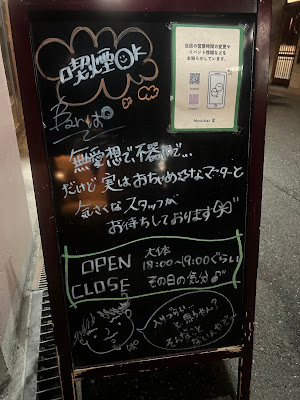 喫煙OK
当店の営業時間の変更や
イベント情報などを
お知らせしています。
Bar
無愛想で、不器用で…
だけど実はおちゃめなマスターと
気さくなスタッフが
お待ちしております
OPEN 大体
18:00〜19:00ぐらい
CLOSE その日の気分♪
入りづらい…
と思うやん?
そんなこと
ないんやで〜